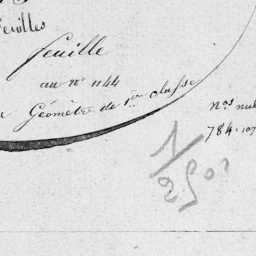 feuilles
feuille
au n° 1144
Géomètre de 1ère classe
Nos nul
784.107
1/2500